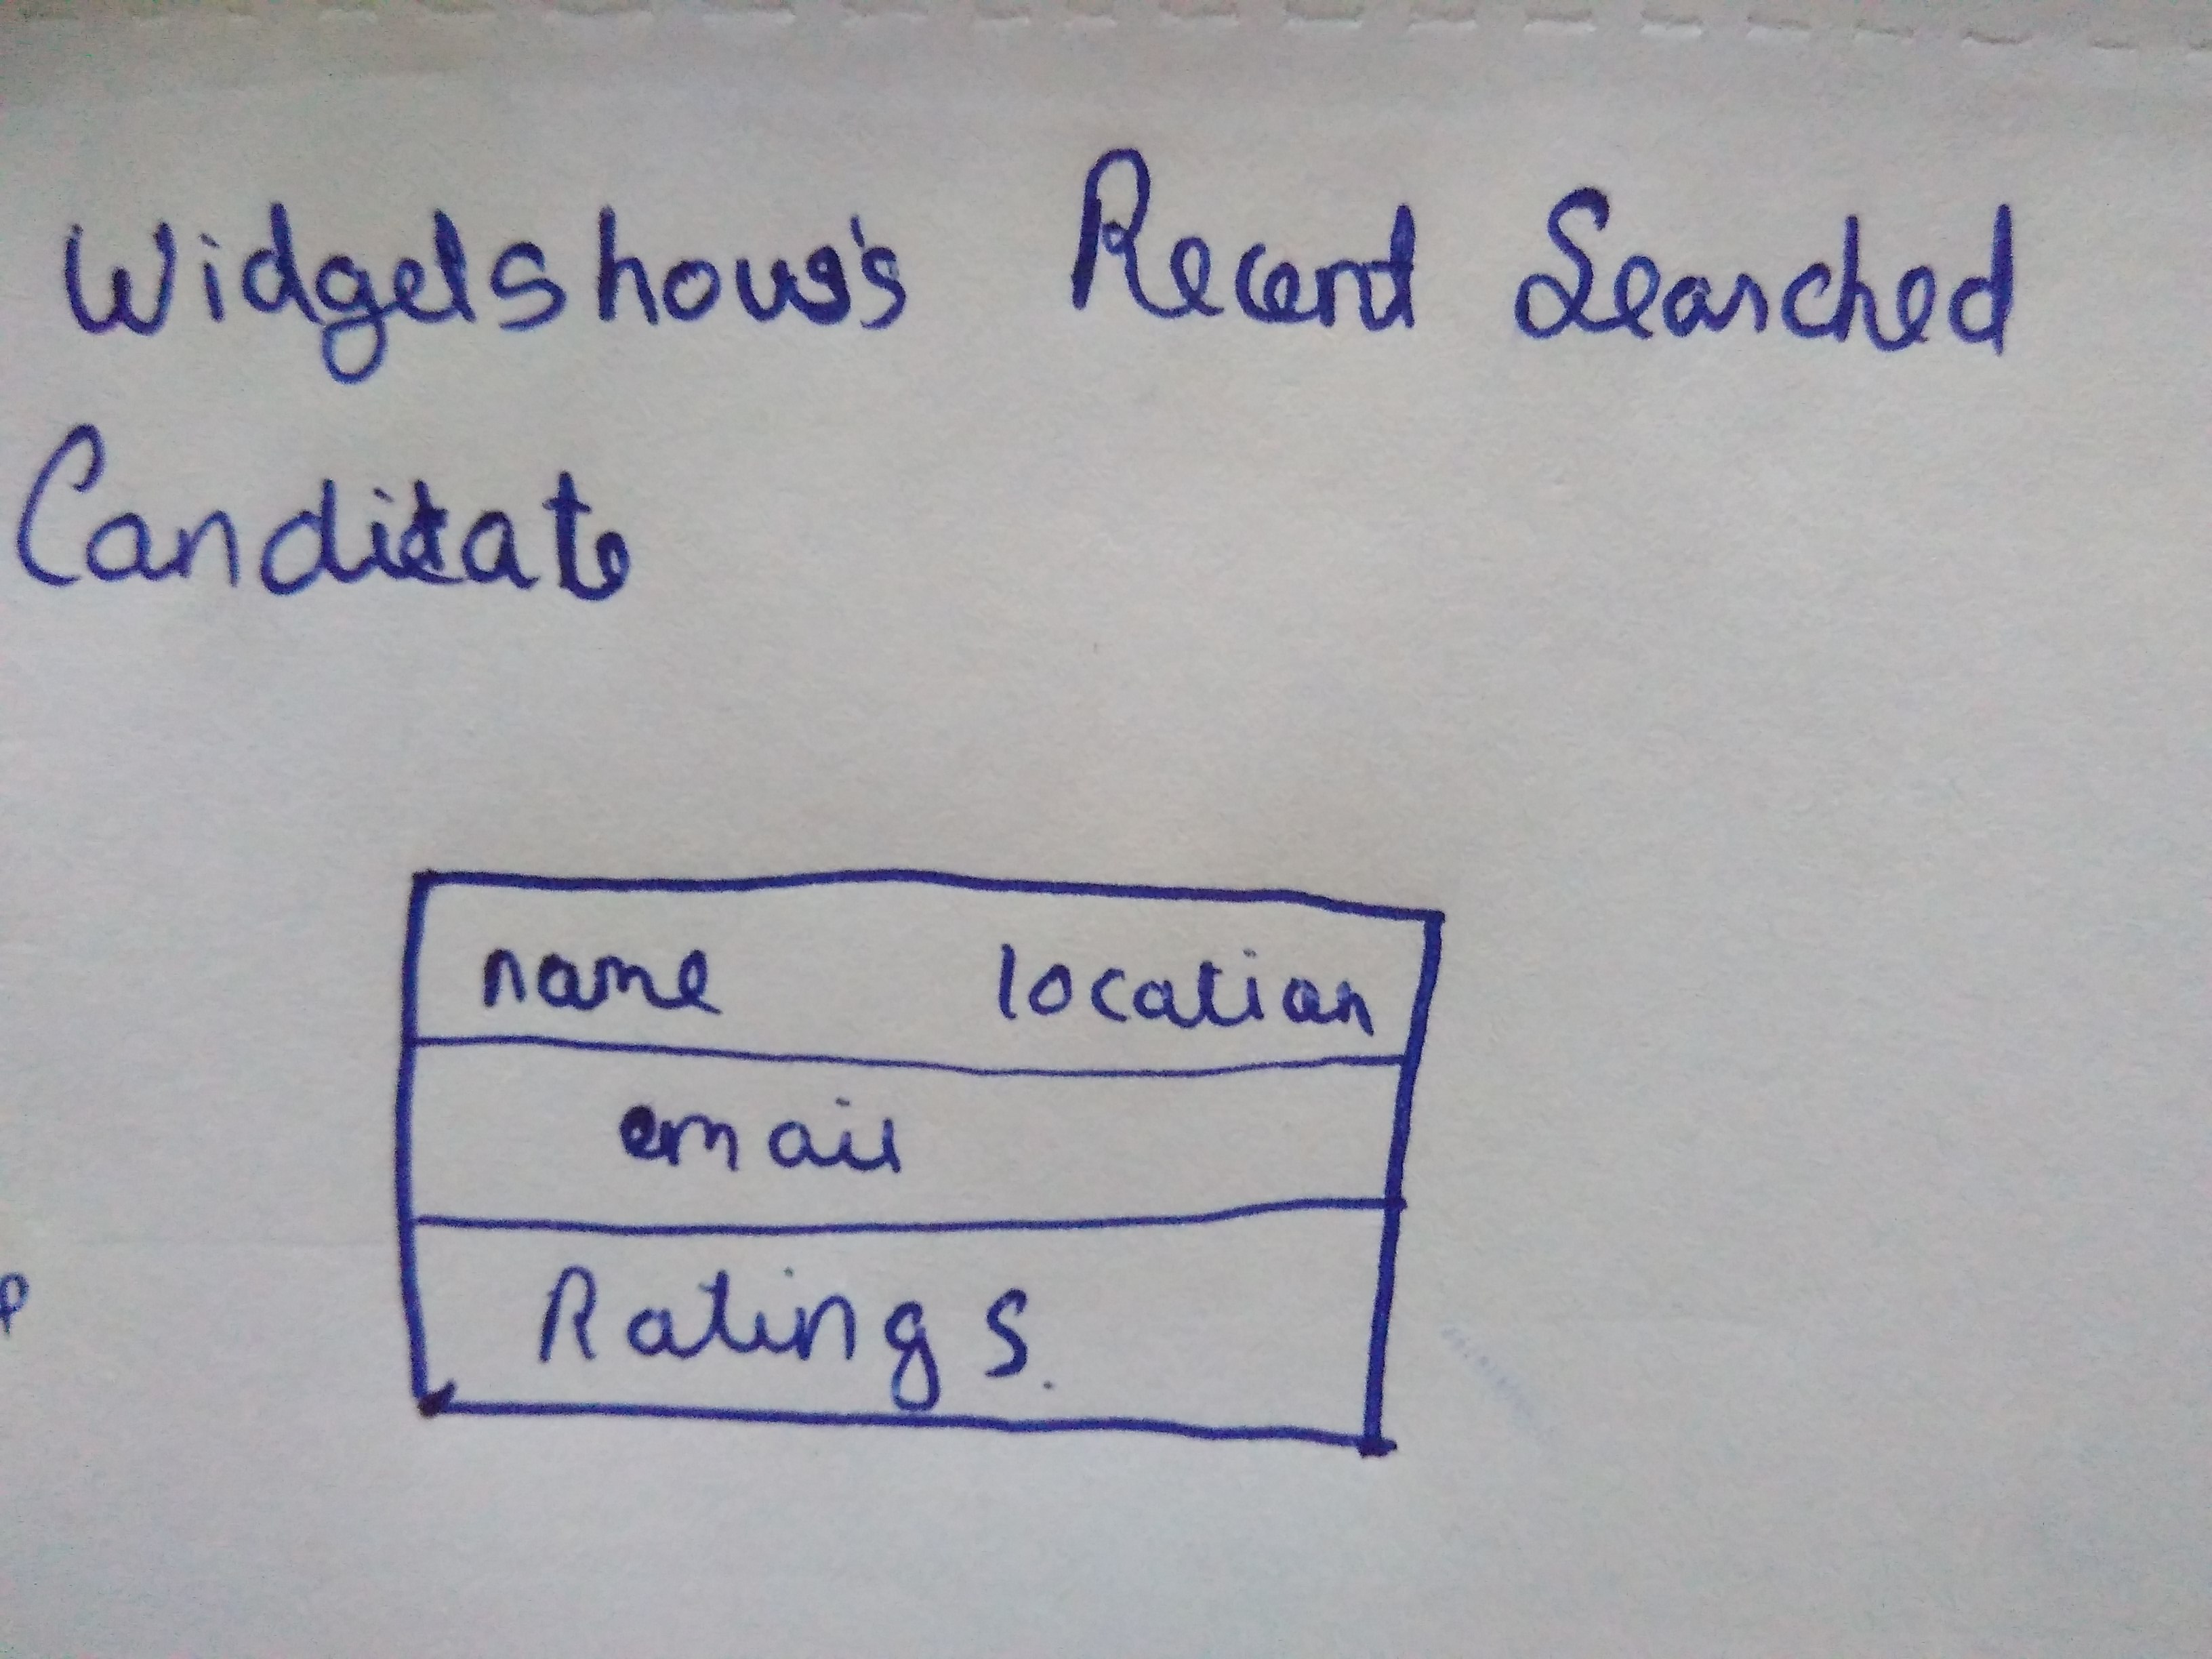 Widget shows's Recent Searched
Canditate
name location
email
Ratings.
P